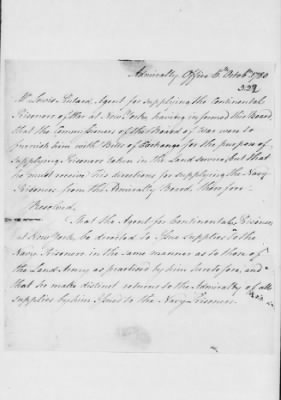 Admiralty Office 5th Octobr 1780
322
Mr Lewis Pintard Agent for supplying the Continental
Prisoners of War at New York, having informed this Board,
that the Commissioners of the Board of War were to
furnish him with Bills of Exchange for the purpose of
supplying Prisoners taken in the Land Service, but that
he must receive his directions for supplying the Navy
Prisoners from the Admiralty Board. Therefore
Resolved,
That the Agent for Continental Prisoners
at New York, be directed to Issue supplies to the
Navy Prisoners in the same manner as to those of
the Land Army as practiced by him heretofore, and
that he make distinct returns to the Admiralty of all
supplies by him Issued to the Navy Prisoners